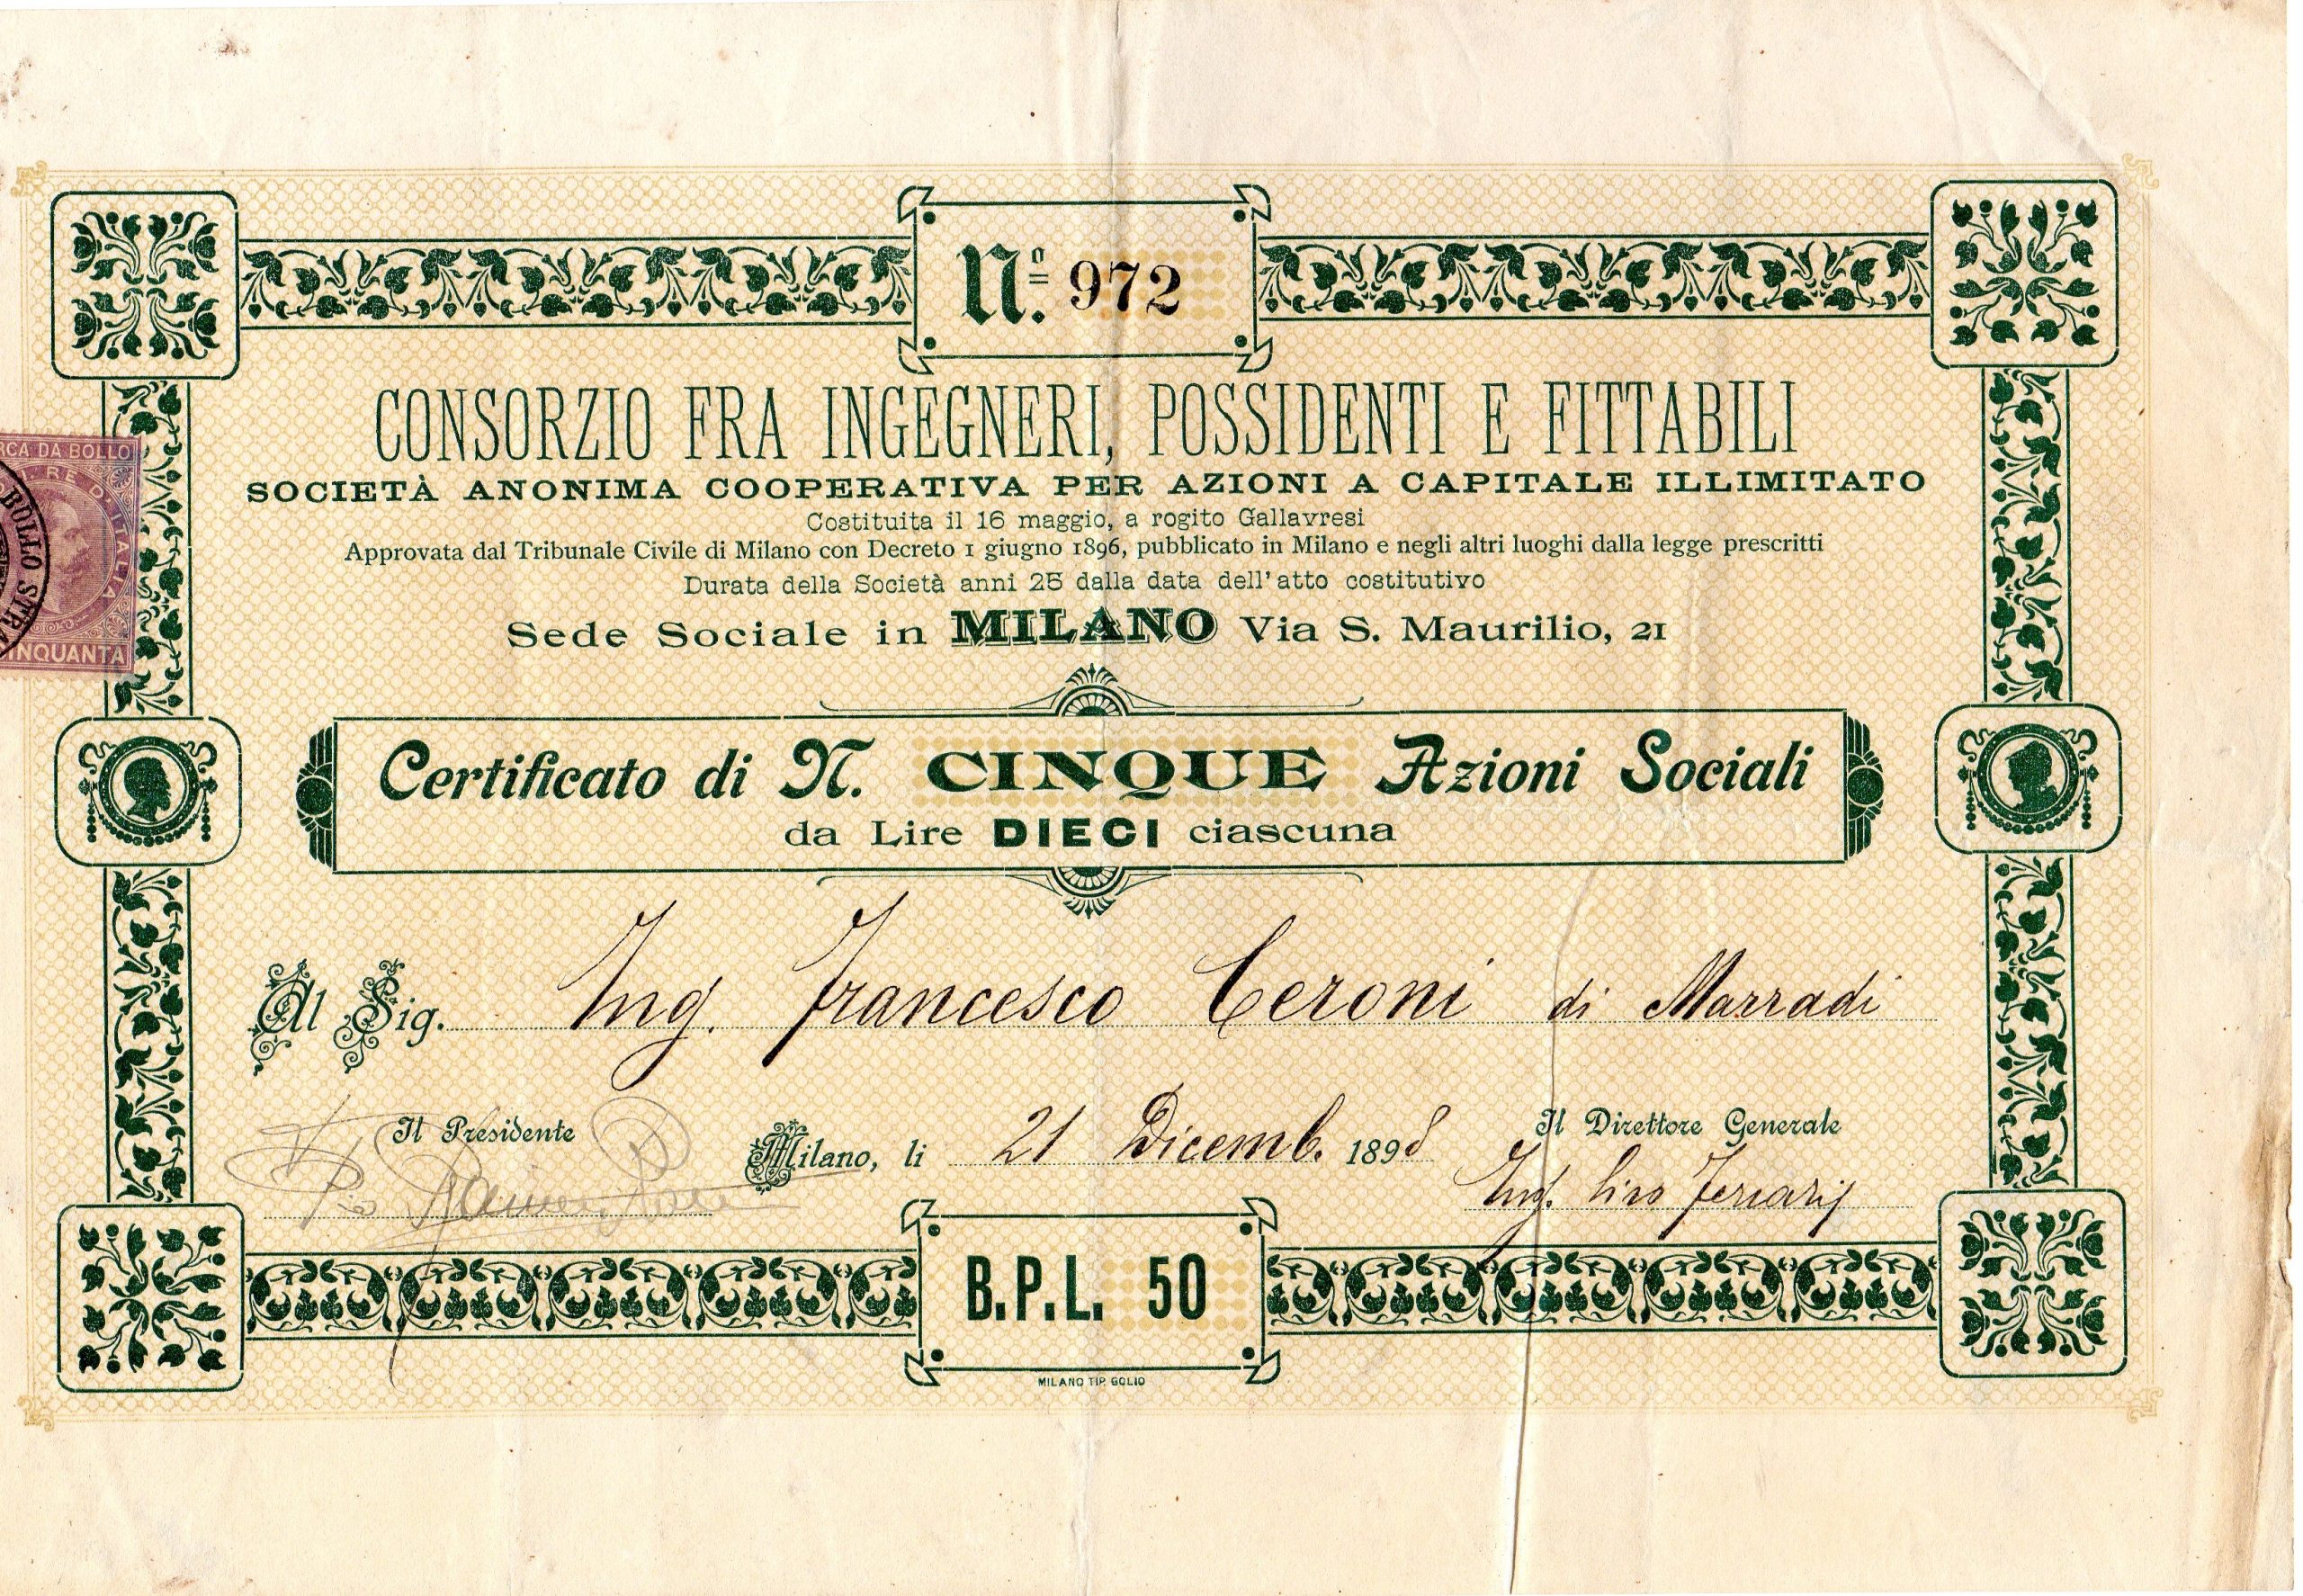 Nº. 972
CONSORZIO FRA INGEGNERI, POSSIDENTI E FITTABILI
SOCIETÀ ANONIMA COOPERATIVA PER AZIONI A CAPITALE ILLIMITATO
Costituita il 16 maggio, a rogito Gallavresi
Approvata dal Tribunale Civile di Milano con Decreto 1 giugno 1896, pubblicato in Milano e negli altri luoghi dalla legge prescritti
Durata della Società anni 25 dalla data dell'atto costitutivo
Sede Sociale in MILANO Via S. Maurilio, 21
RCA DA BOLLO
RE D'ITALIA
BOLLO STRA
INQUANTA
Certificato di N. CINQUE Azioni Sociali
da Lire DIECI ciascuna
Al Sig. Ing. Francesco Ceroni di Marradi
Il Presidente
Milano, li 21 Dicemb. 1898
Il Direttore Generale
Ing. Ciro Ferrarij
B.P.L. 50
MILANO TIP. GOLIO